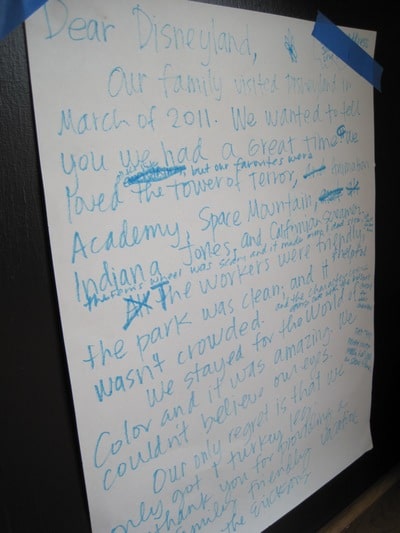 Dear Disneyland,
Our family visited Disneyland in
March of 2011. We wanted to tell
you we had a great time. We
but our favorites were
loved the Tower of Terror, animation
Academy, Space Mountain
Indiana Jones, and California Screamin
the ferris wheel was scary and it made
The workers were friendly,
the park was clean, and it
wasn't crowded.
We stayed for the World of
Color and it was amazing. We
couldn't believe our eyes.
Our only regret is that we
only got 1 turkey leg.
thank you for
family friendly
the Ericksons